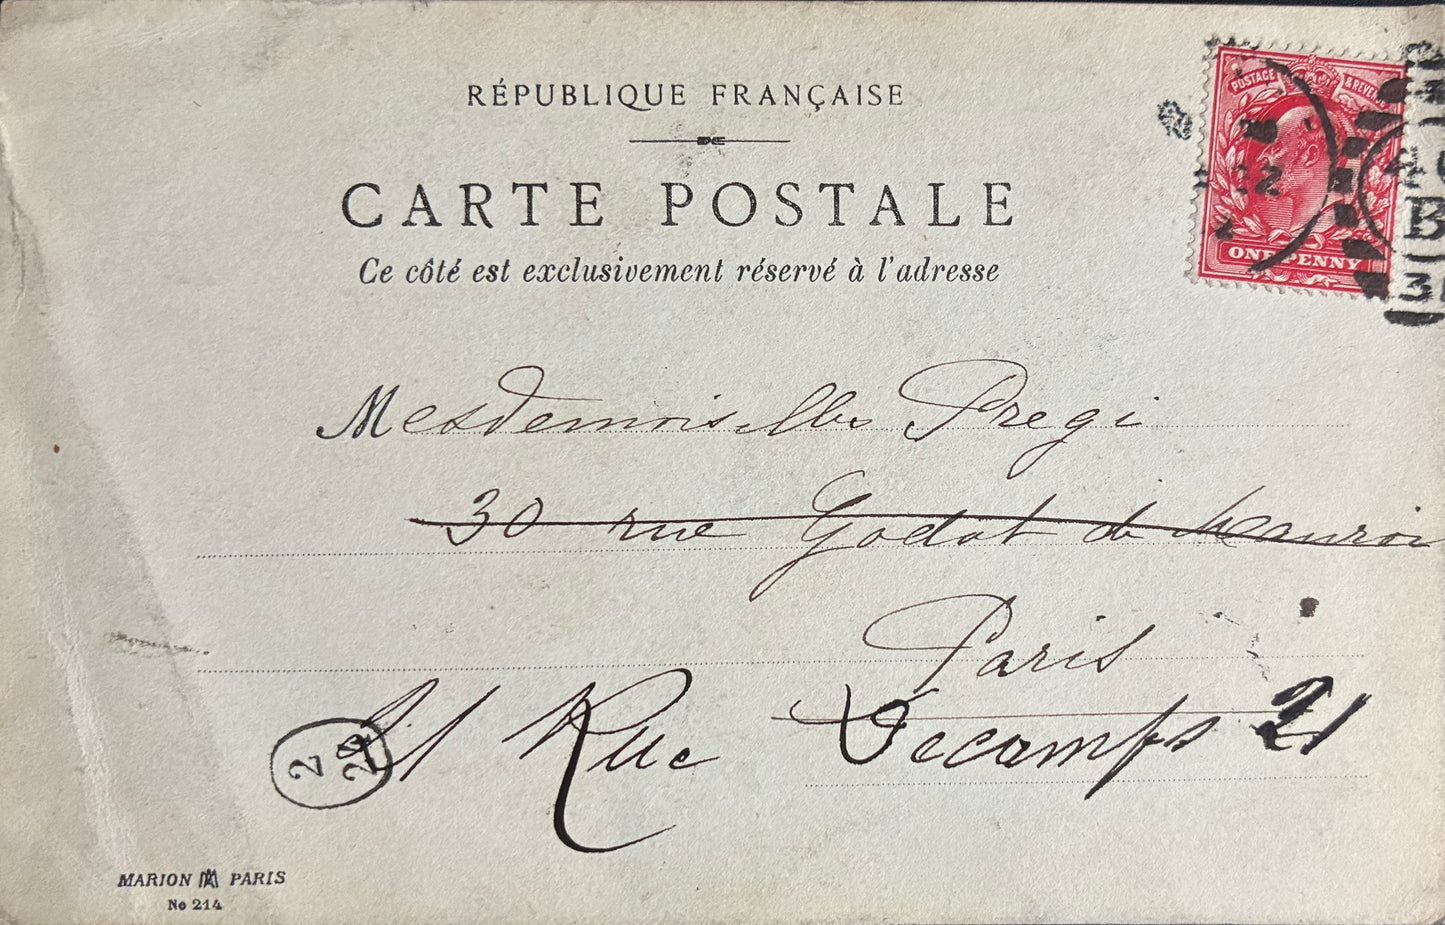 RÉPUBLIQUE FRANÇAISE
CARTE POSTALE
Ce côté est exclusivement réservé à l'adresse
POSTAGE & REVENUE
ONE PENNY
Mesdemoiselles Pregi
30 rue Godot de Mauroi
Paris
21 Rue Decamps 21
2
24
MARION PARIS
No 214